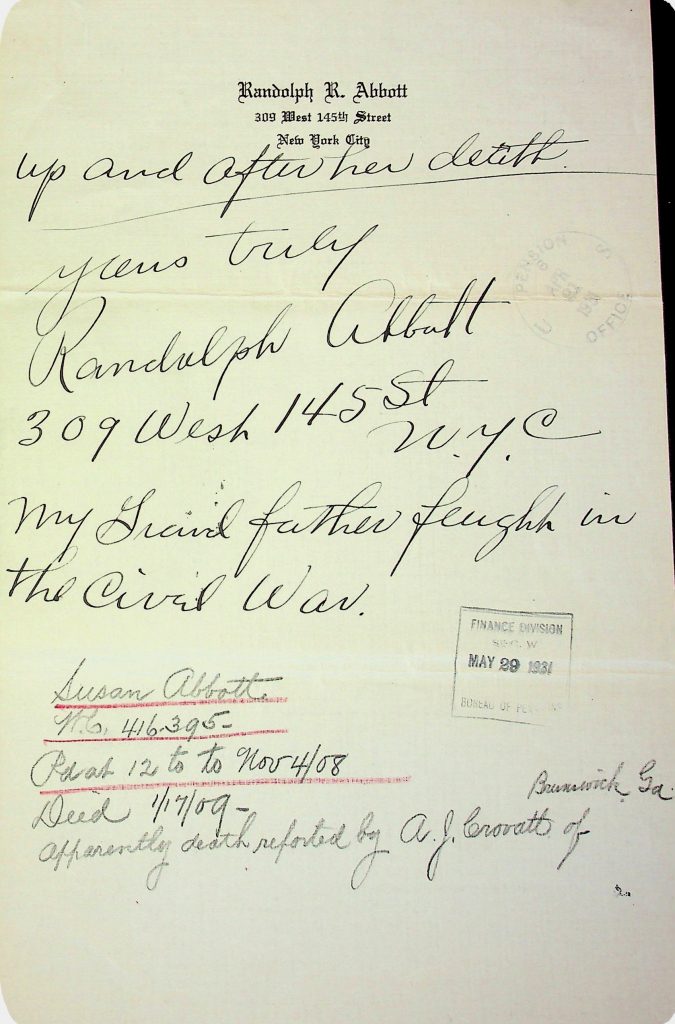 Randolph R. Abbott
309 West 145th Street
New York City
up and after her death.
yours truly
Randolph Abbott
309 West 145 St
N.Y.C
U S PENSION OFFICE
APR
1931
My Grand father fought in
the Civil War.
FINANCE DIVISION
MAY 29 1931
BUREAU OF PENSIONS
Susan Abbott.
W.C. 416-395-
Pd at 12 to to Nov 4/08
Died 1/17/09-
Brunswick, Ga.
apparently death reported by A. J. Crovatt of